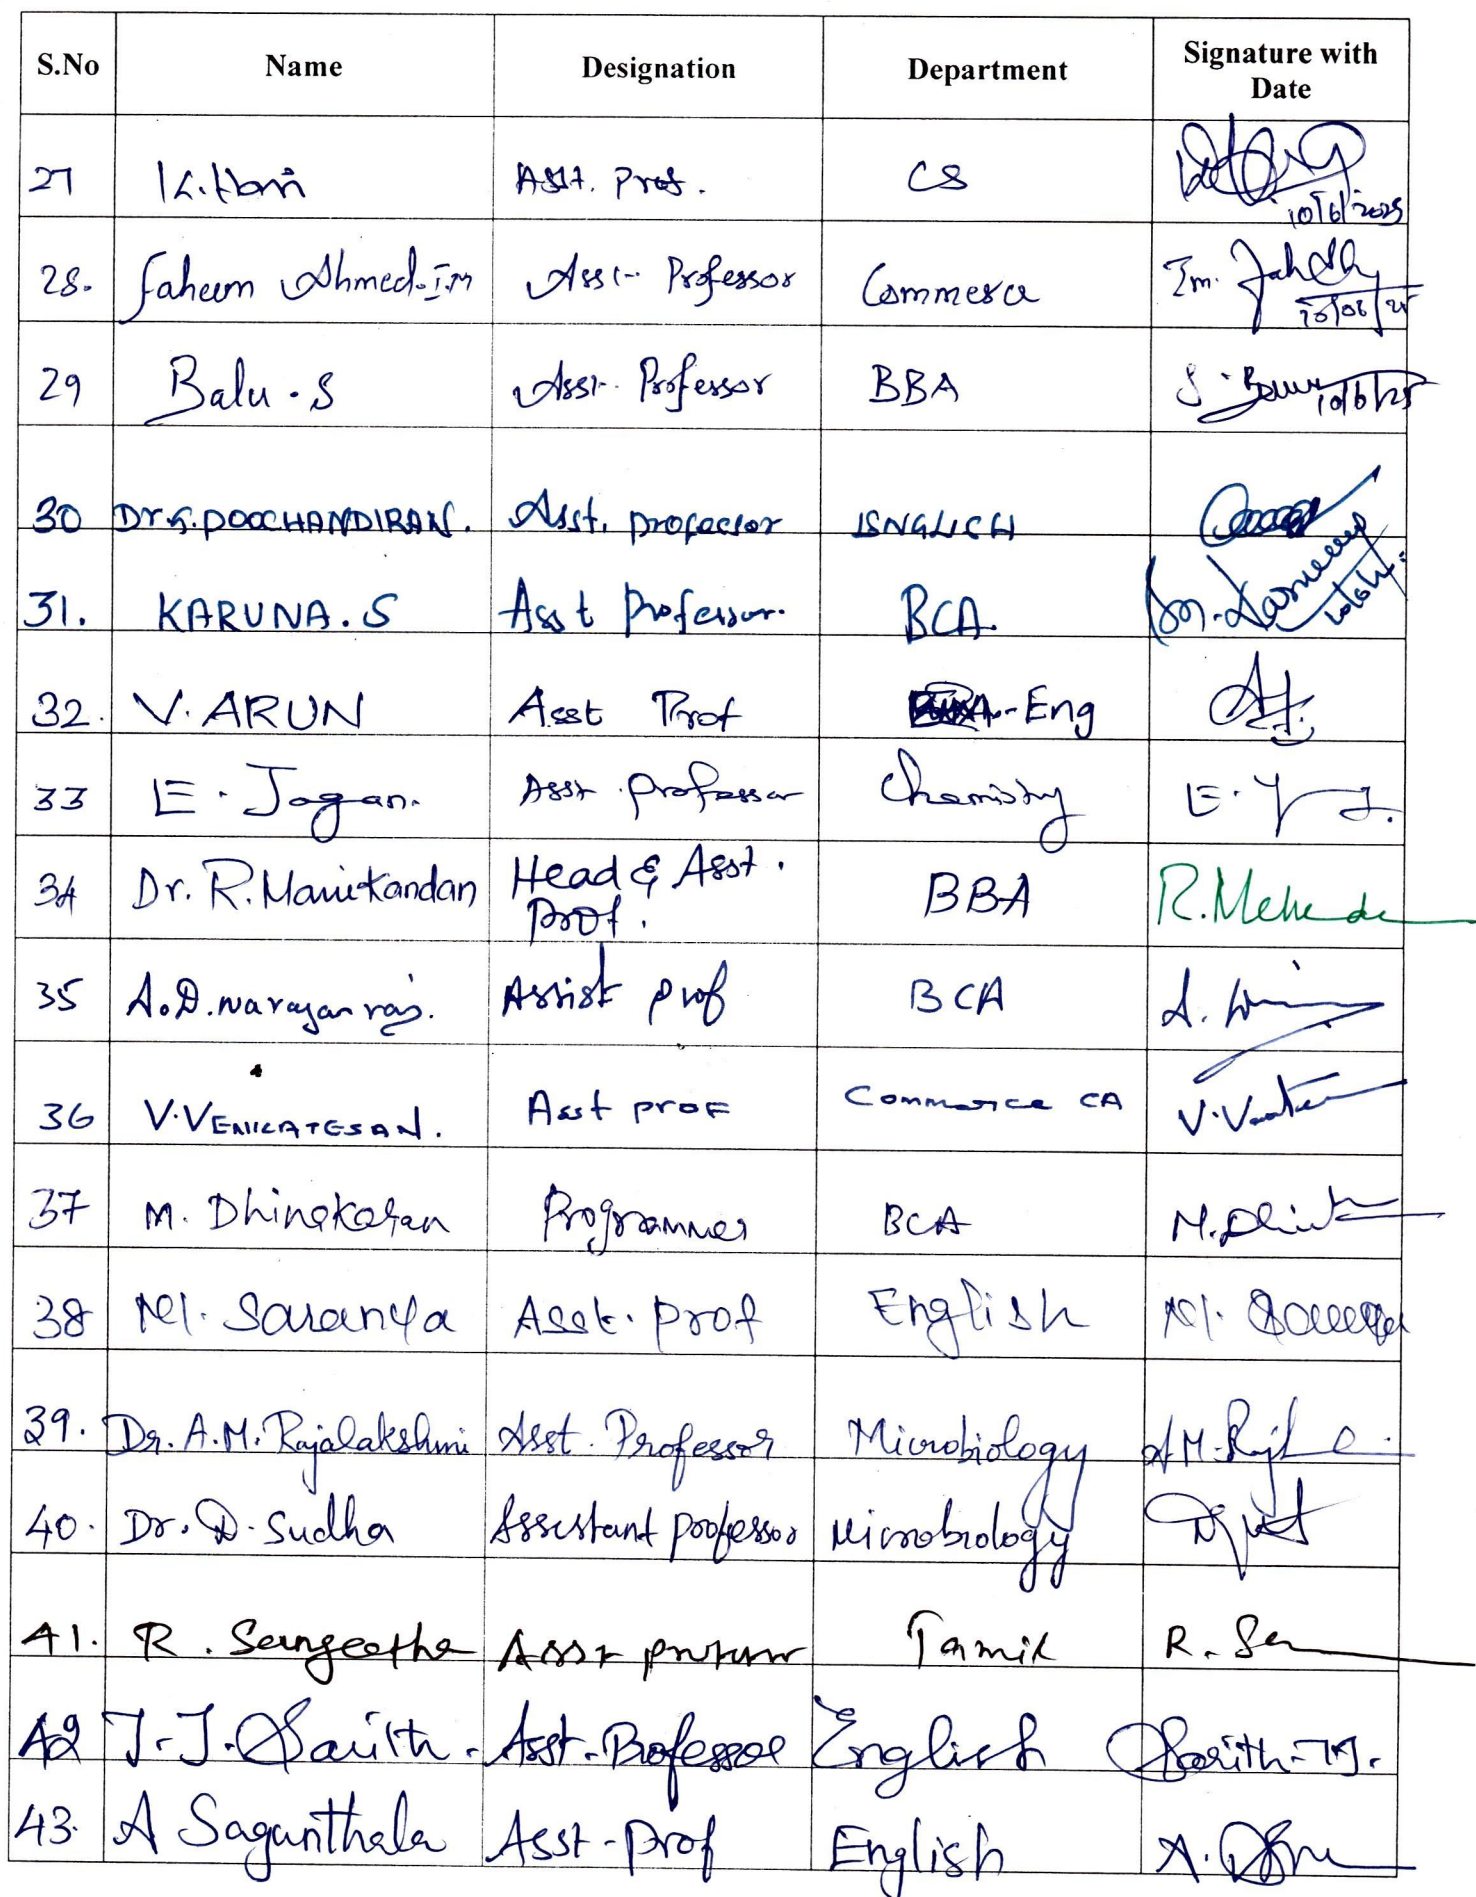 S.No Name Designation Department Signature with Date
27 K.Hari Asst. Prof. CS 10/6/2025
28. Faheem Ahmed.I.m Asst. Professor Commerce Im. 10/06/25
29 Balu.S Asst. Professor BBA S. 10/6/25
30 Dr.G.POOCHANDIRAN. Asst. professor ENGLISH
31. KARUNA.S Asst Professor. BCA.
32. V.ARUN Asst Prof -Eng
33 E.Jagan. Asst professor Chemistry E.
34 Dr.R.Manikandan Head & Asst. Prof. BBA R.
35 A.D.Narayanraj. Assist prof BCA A.
36 V.VENKATESAN. Asst prof Commerce CA V.
37 M. Dhinakaran Programmer BCA M.
38 M. Saranya Asst. prof English M.
39. Dr.A.M.Rajalakshmi Asst. Professor Microbiology A.M.
40. Dr.D.Sudha Assistant professor Microbiology
41. R.Sangeetha Asst professor Tamil R.
42 T.J.Sarith. Asst-Professor English Sarith-TJ.
43. A Sagunthala Asst-prof English A.